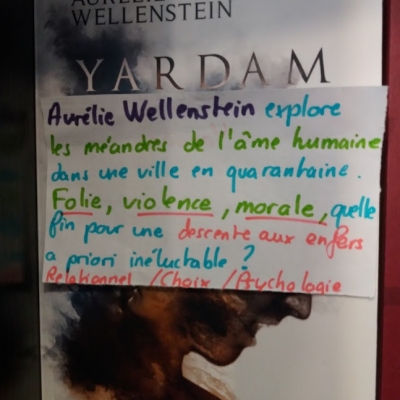 AURÉLIE
WELLENSTEIN
YARDAM
Aurélie Wellenstein explore
les méandres de l'âme humaine
dans une ville en quarantaine.
Folie, violence, morale, quelle
fin pour une descente aux enfers
a priori inéluctable ?
Relationnel / Choix / Psychologie